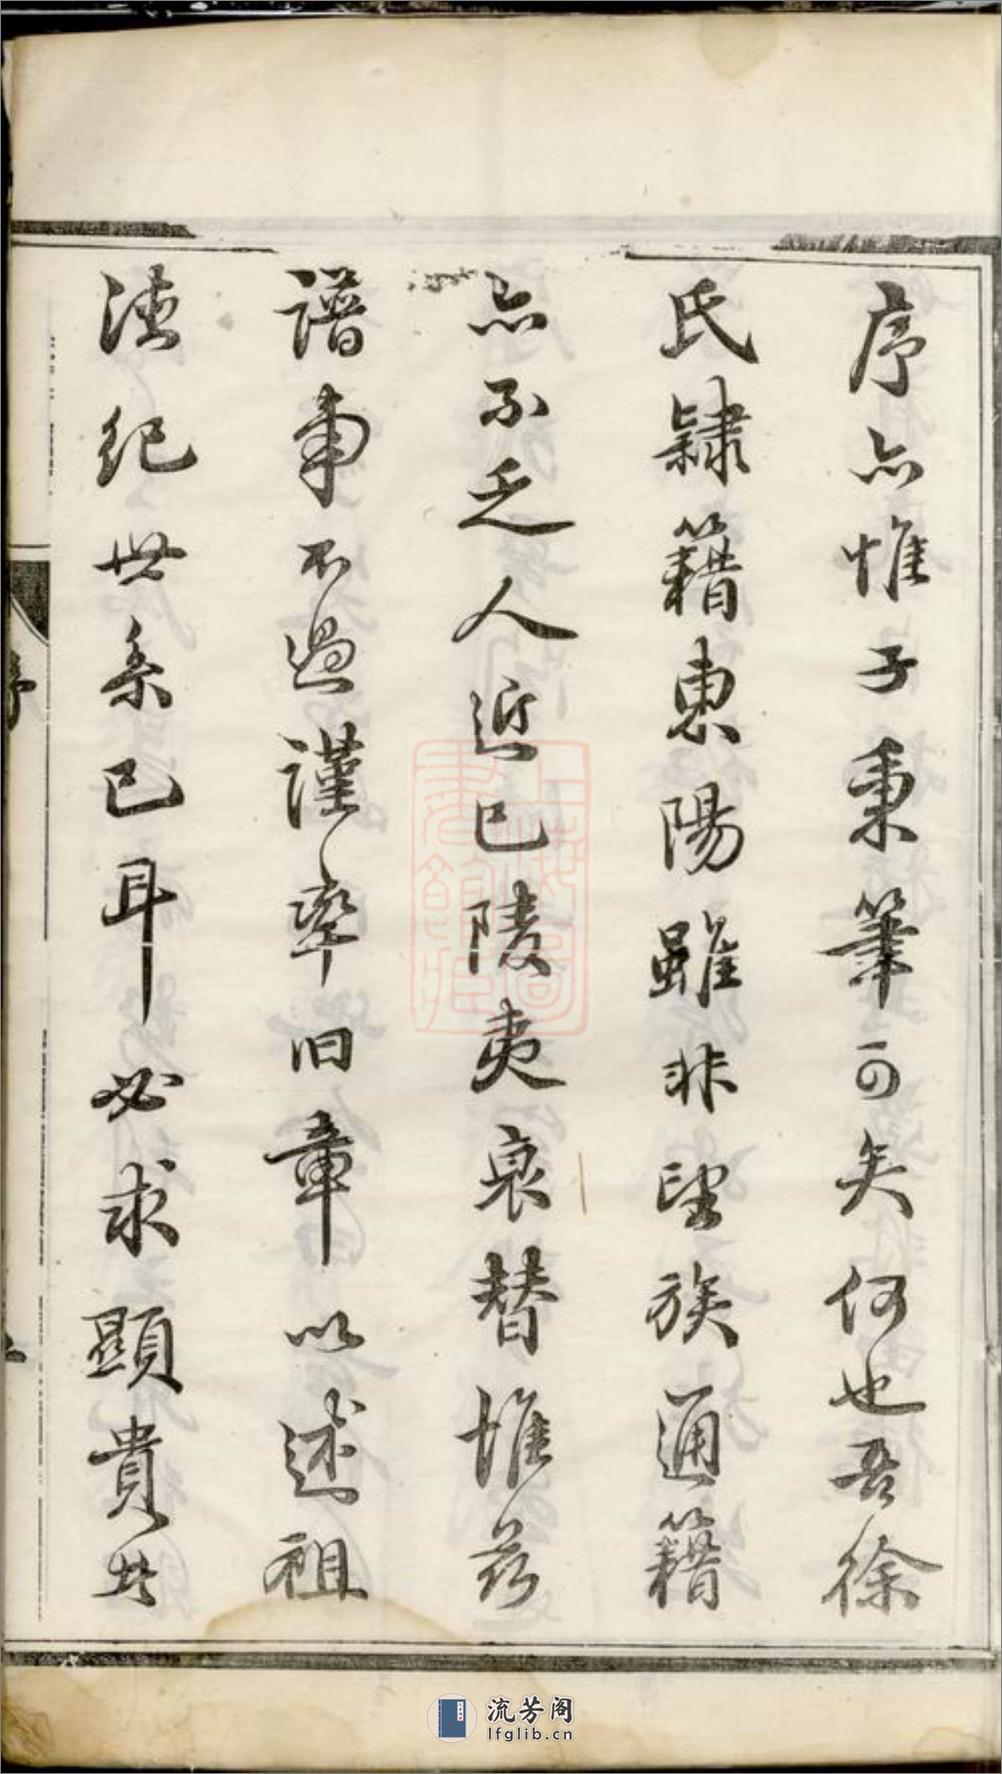 序亦惟子秉筆可矣何也吾徐
氏隸籍東陽雖非望族通籍
亦不乏人近已陵夷衰替惟兹
譜事不過謹率旧章以述祖
德紀世系已耳必求顯貴其
序
上海圖書館藏
流芳阁
lfglib.cn